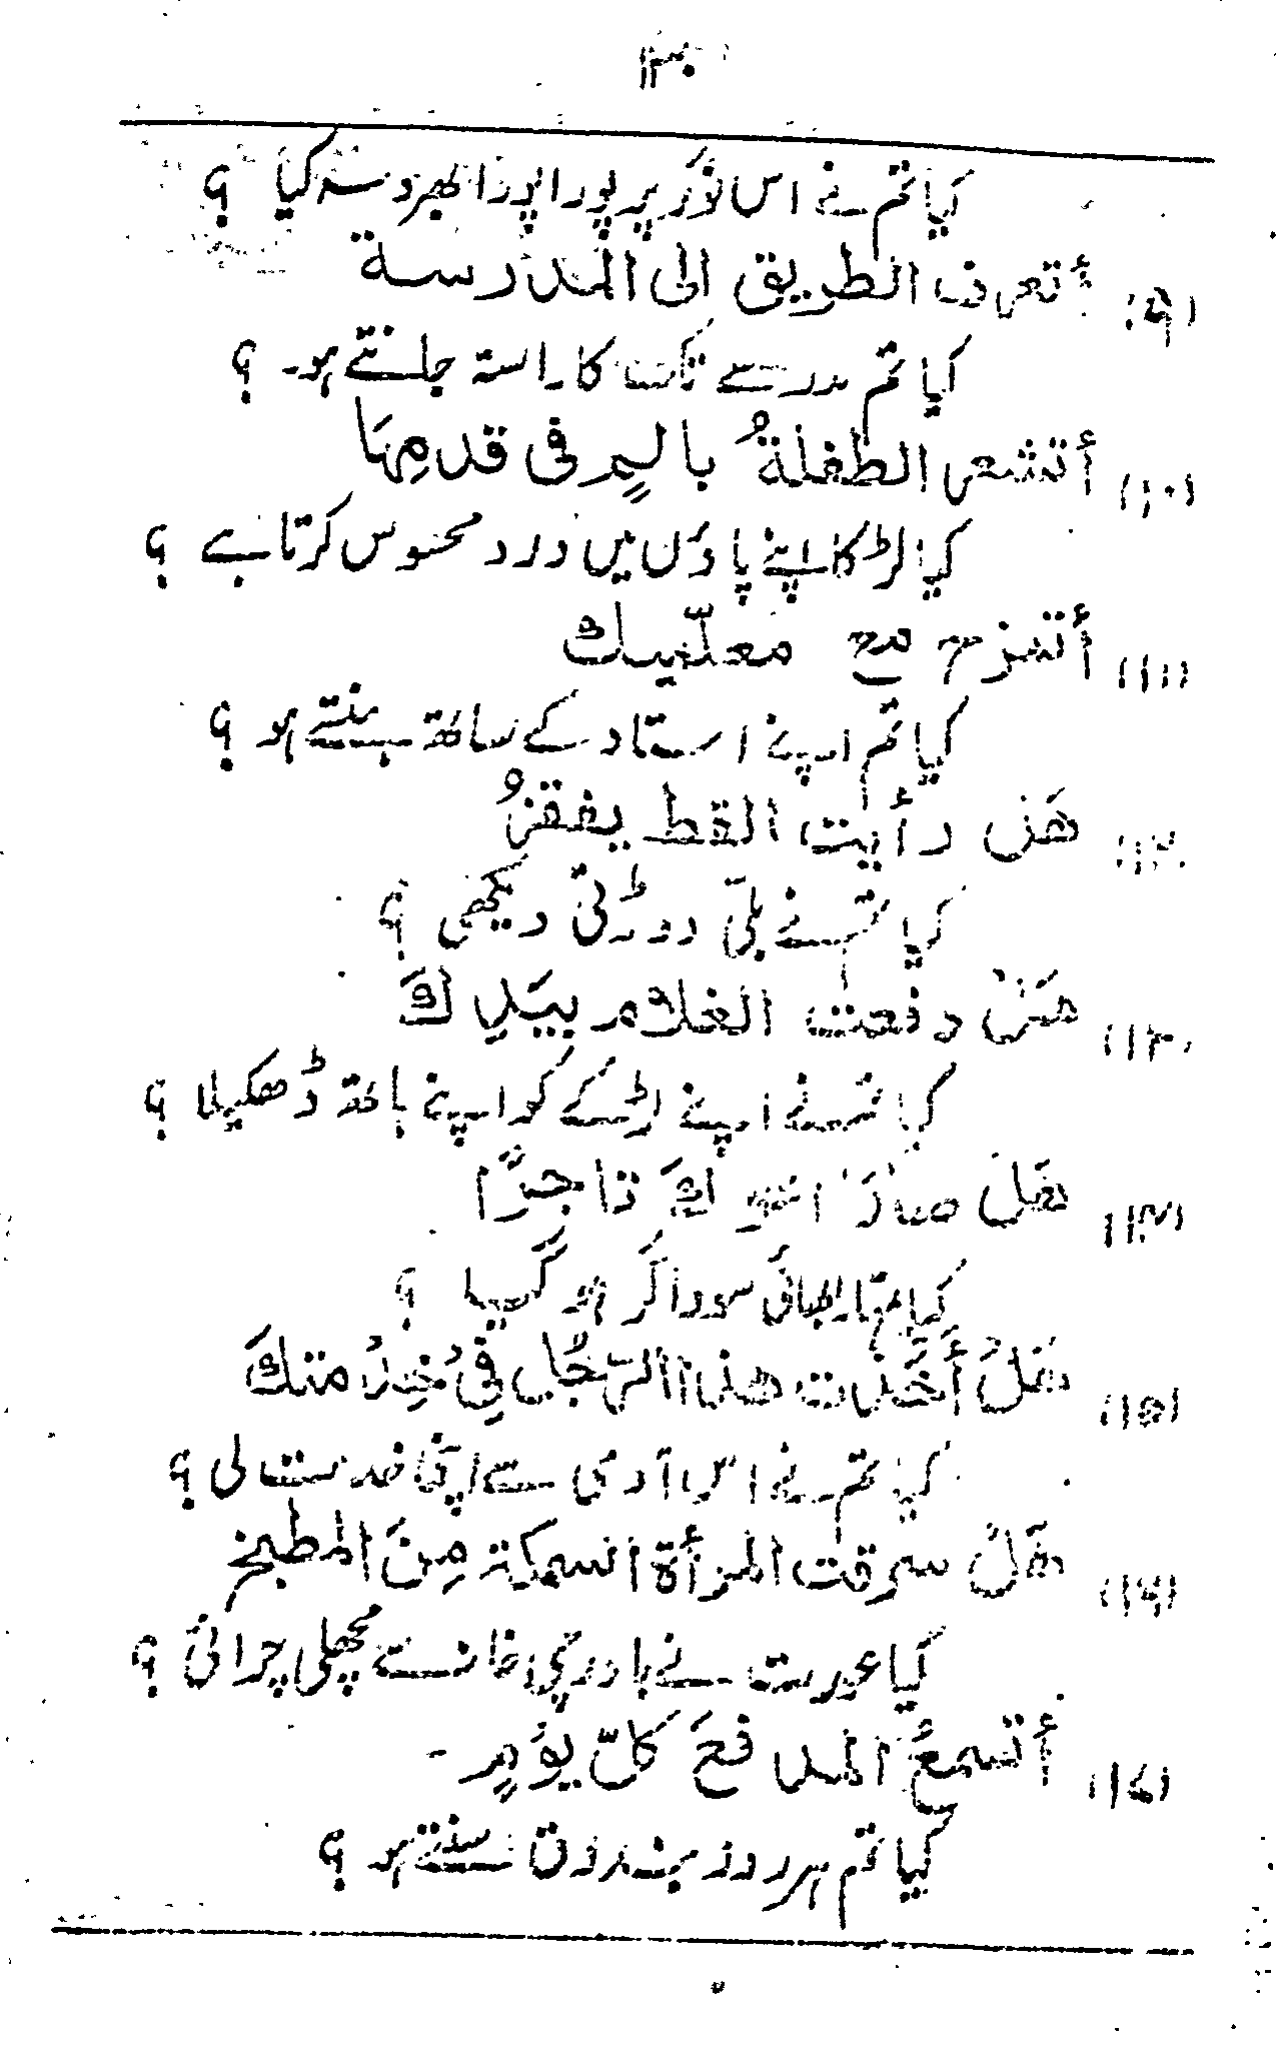 ۱۳۰
کیا تم نے اس نوکر پر پورا پورا بھروسہ کیا ؟
(۹) أتعرف الطريق الى المدرسة
کیا تم مدرسے تک کا راستہ جانتے ہو۔ ؟
(۱۰) أتشعر الطفلةُ بالیمٍ فی قدمِهَا
کیا لڑکا اپنے پاؤں میں درد محسوس کرتا ہے ؟
(۱۱) أتمزح مع معلّميك
کیا تم اپنے استاد کے ساتھ ہنستے ہو ؟
(۱۲) هَل رأيت القط يفقزُ
کیا تم نے بلّی دوڑتی دیکھی ؟
(۱۳) هَلْ دفعت الغلام بيَدِكَ
کیا تم نے اپنے لڑکے کو اپنے ہاتھ ڈھکیلا ؟
(۱۴) هَلْ صَارَ اخوكَ تاجرًا
کیا تمہارا بھائی سوداگر ہو گیا ؟
(۱۵) هَلْ أَخَذت هذا الرّجُل فِیْ خِدْمتكَ
کیا تم نے اس آدمی سے اپنی خدمت لی ؟
(۱۶) هَلْ سرقت المرأة السمكة مِنَ المطبخ
کیا عورت نے باورچی خانے سے مچھلی چرائی ؟
(۱۷) أتسمعُ المدافعَ كلّ يوْمٍ -
کیا تم ہر روز بندوق سنتے ہو ؟